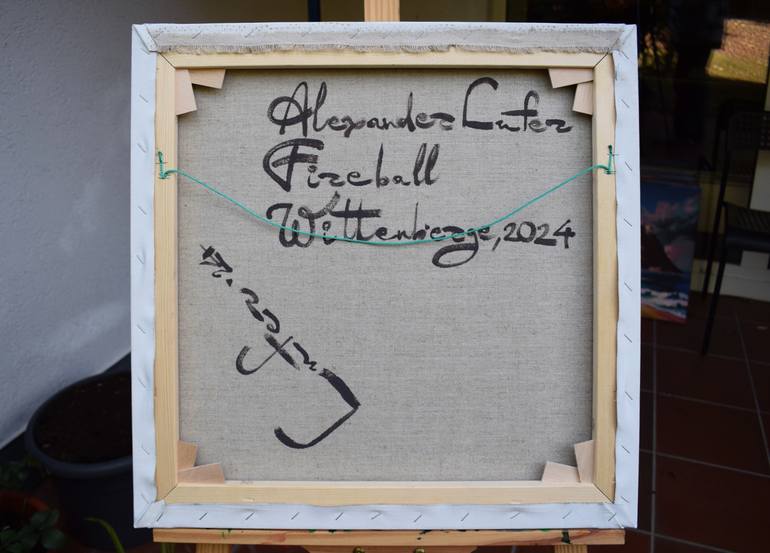 Alexander Lufer
Fireball
Wittenberge, 2024